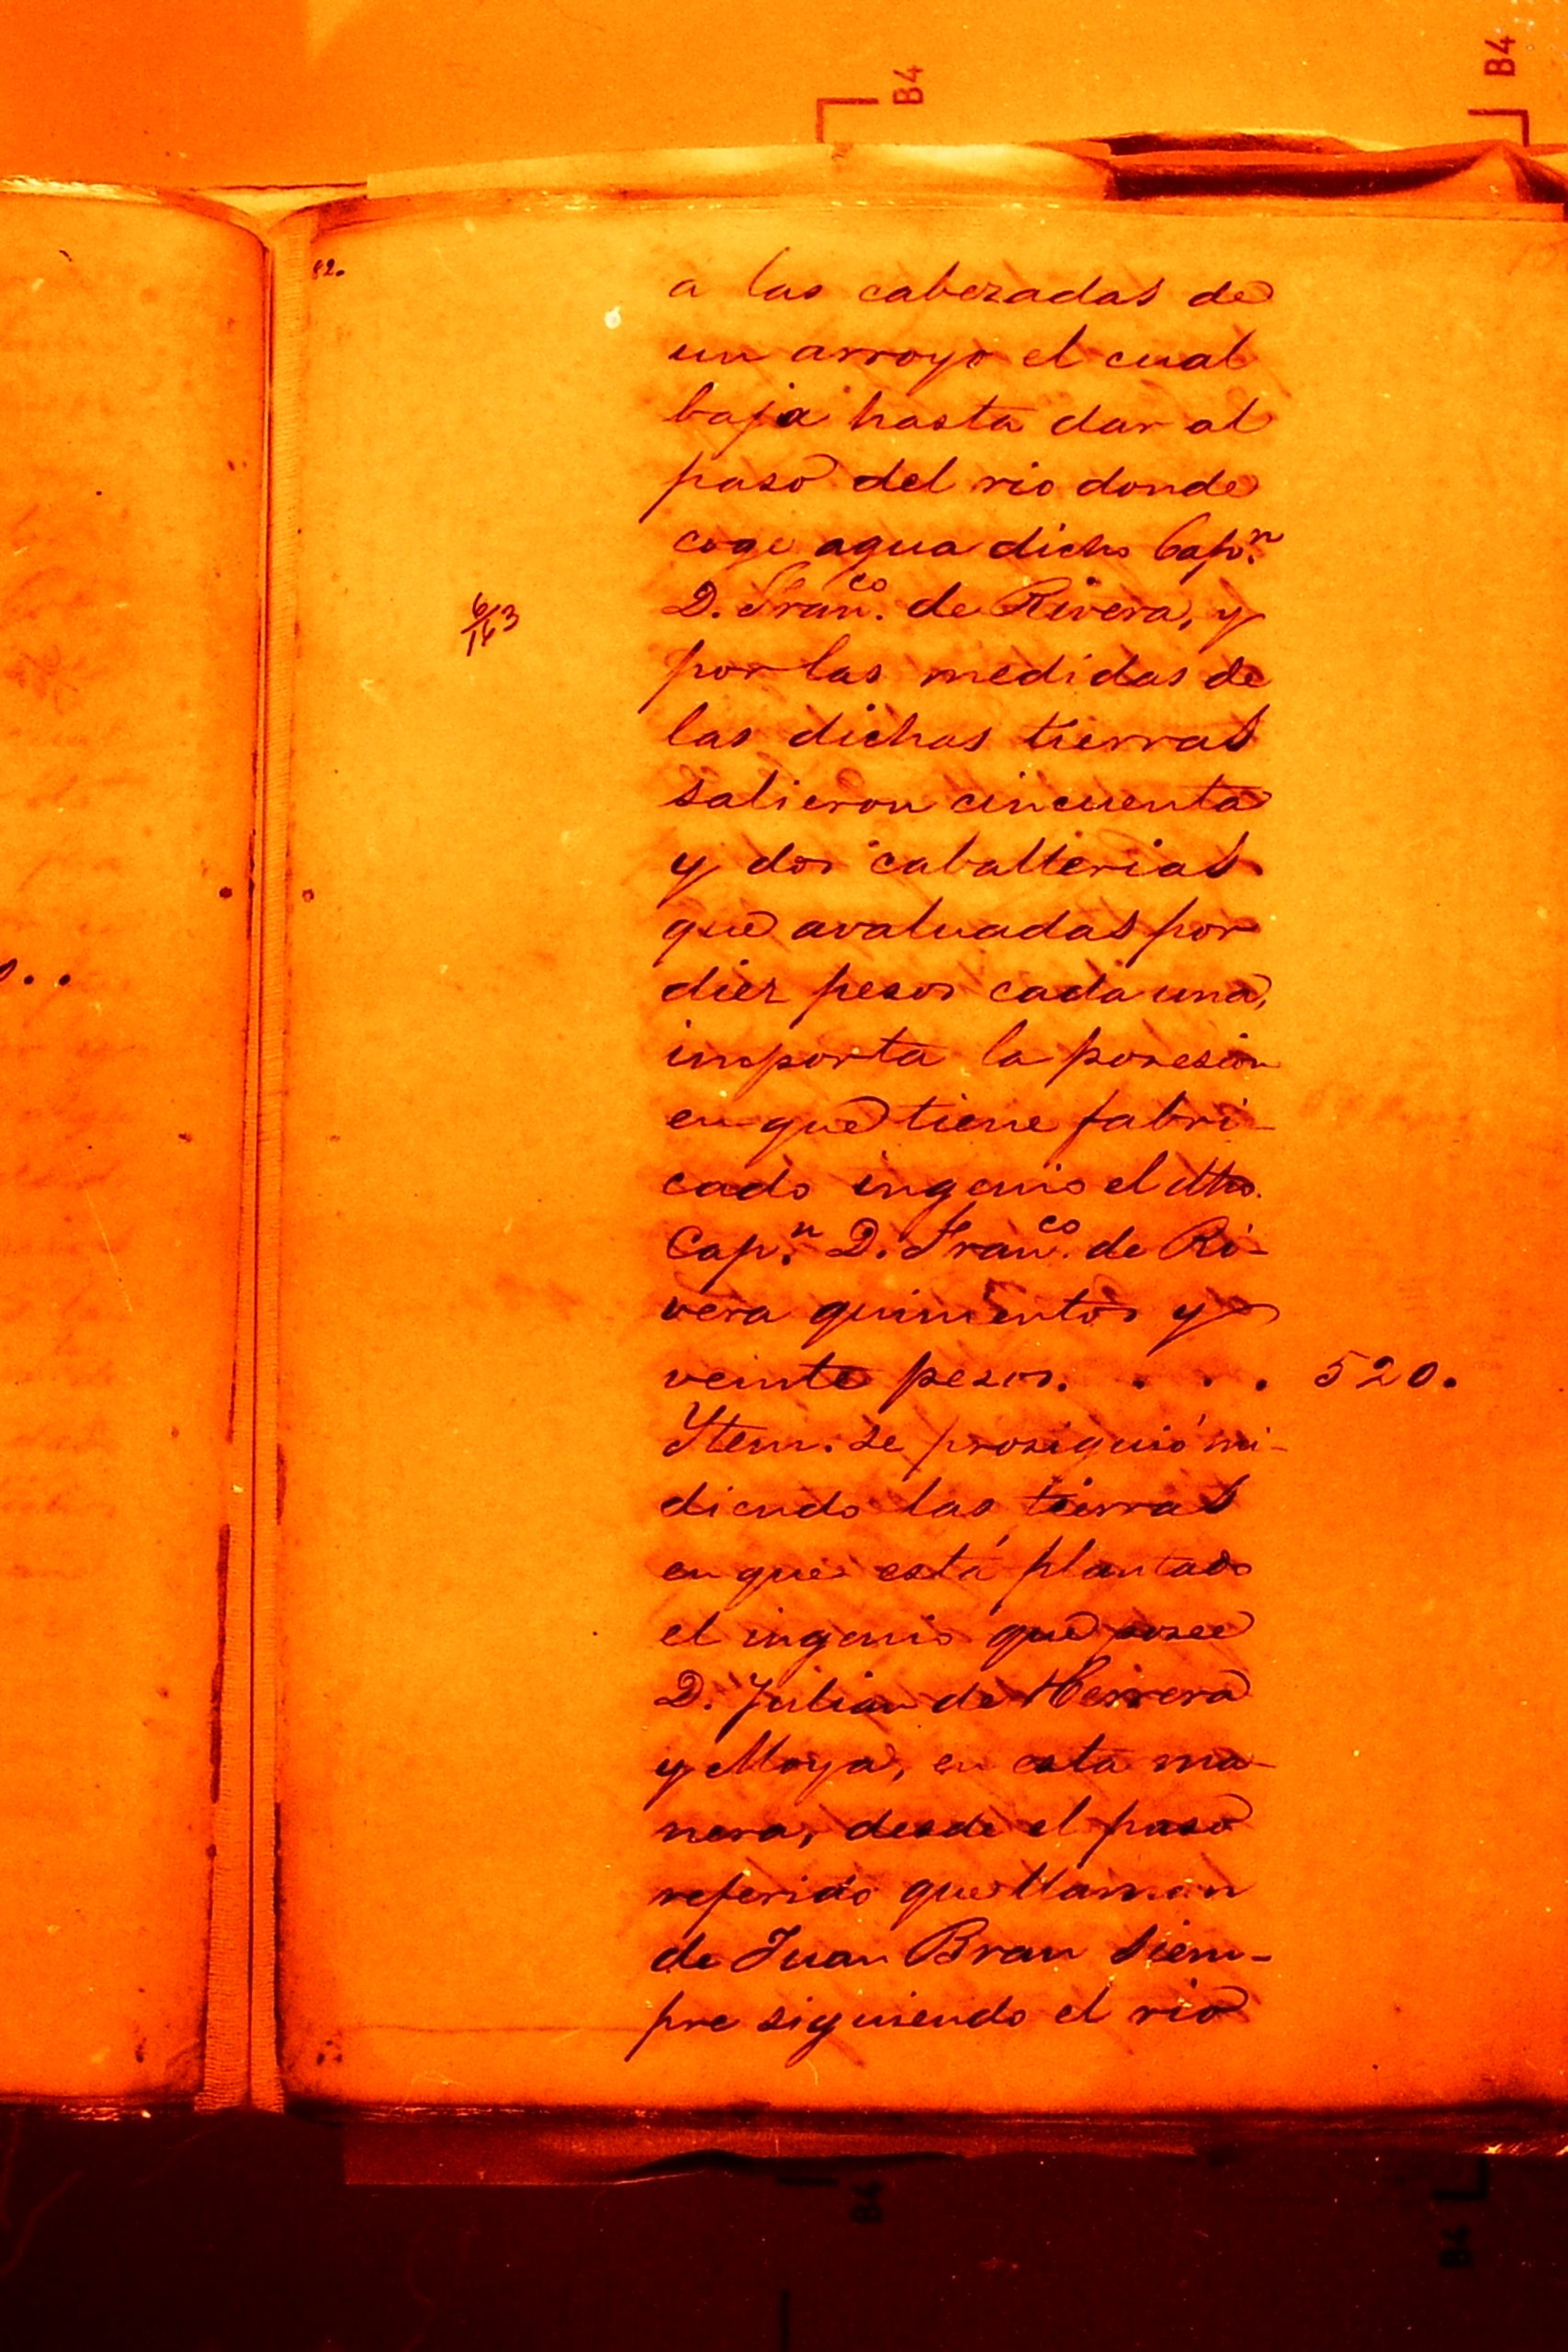 B4
B4
82.
a las cabezadas de
un arroyo el cual
baja hasta dar al
paso del rio donde
coge agua dicho Cap.n
D. Fran.co de Rivera, y
6/163
por las medidas de
las dichas tierras
salieron cincuenta
y dos caballerias
que avaluadas por
diez pesos cada una,
importa la posesion
en que tiene fabri-
cado ingenio el dho.
Cap.n D. Fran.co de Ri-
vera quinientos y
veinte pesos. . . . 520.
Ytem. se prosiguió mi-
diendo las tierras
en que está plantado
el ingenio que posee
D. Julian de Herrera
y Moya, en esta ma-
nera, desde el paso
referido que llaman
de Juan Bran siem-
pre siguiendo el rio
B4
B4